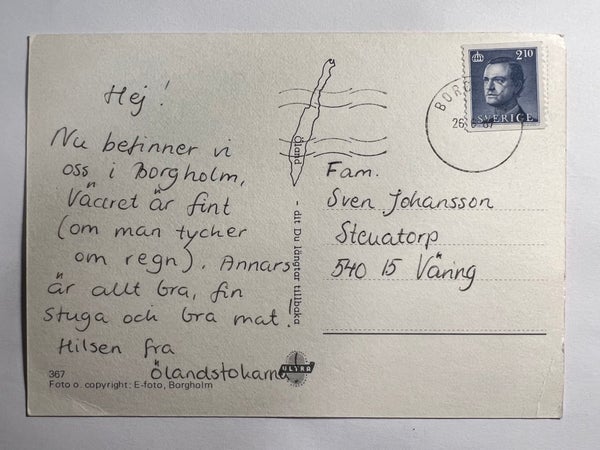 Hej!
Nu befinner vi
oss i Borgholm,
Vädret är fint
(om man tycker
om regn). Annars
är allt bra, fin
stuga och bra mat!
Hilsen fra
ölandstokarna
367
Foto o. copyright: E-foto, Borgholm
Öland
- dit Du längtar tillbaka
ULTRA
2 10
SVERIGE
BORG
26 87
Fam.
Sven Johansson
540 15 Väring